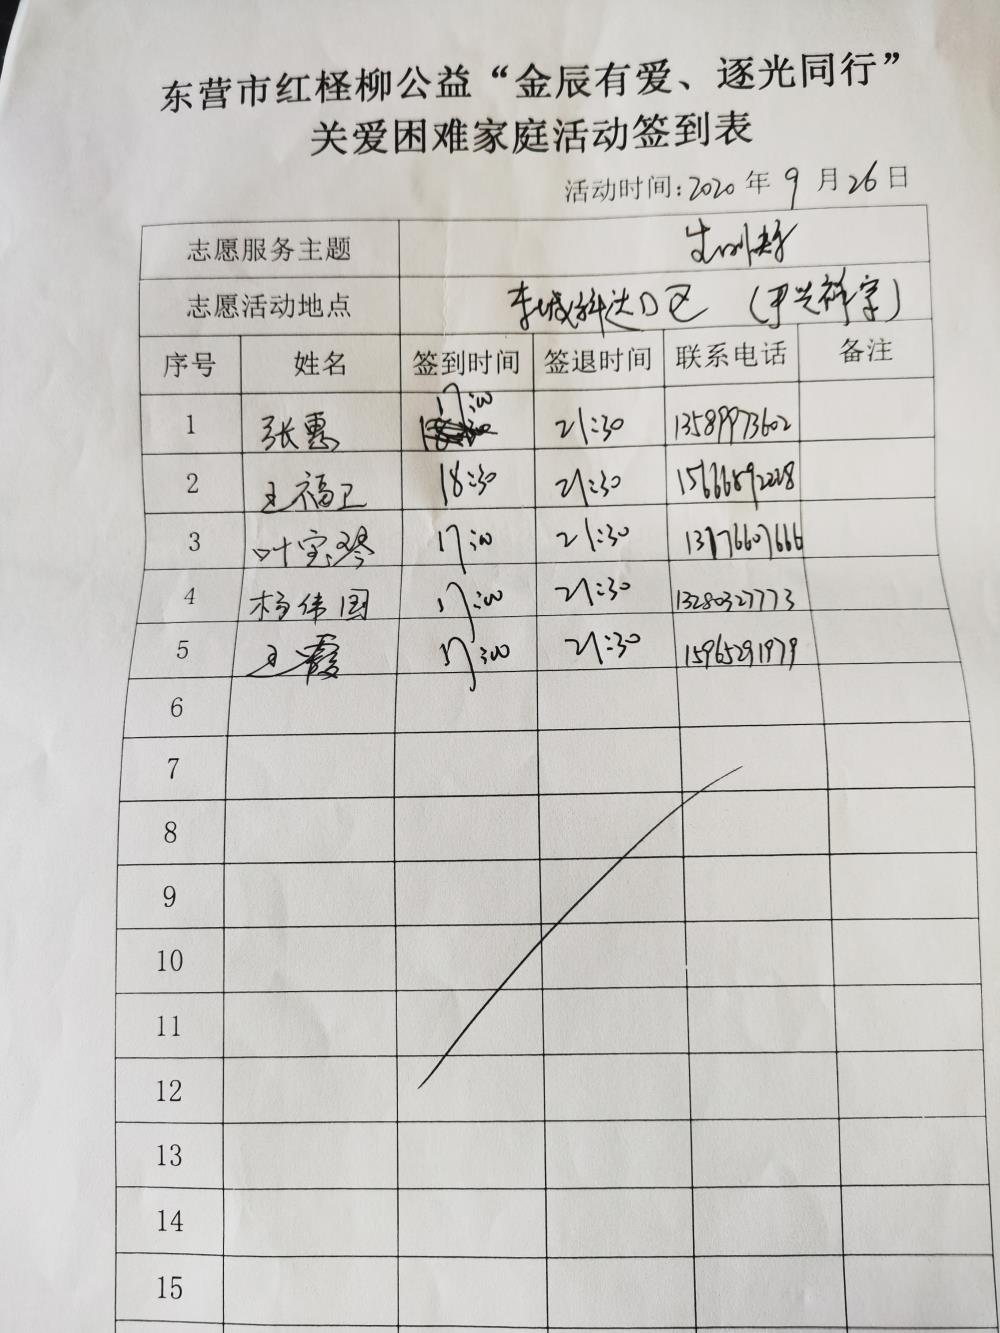 东营市红柽柳公益“金辰有爱、逐光同行”
关爱困难家庭活动签到表
活动时间:2020年9月26日
志愿服务主题
志愿活动地点 东城科达小区 (尹兴祥字)
序号 姓名 签到时间 签退时间 联系电话 备注
1 张惠 17:00 21:30 13589973602
2 王福卫 18:30 21:30 15666592228
3 叶宝琴 17:00 21:30 13176607666
4 杨伟国 17:00 21:30 13280327773
5 王霞 17:00 21:30 15965291979
6
7
8
9
10
11
12
13
14
15